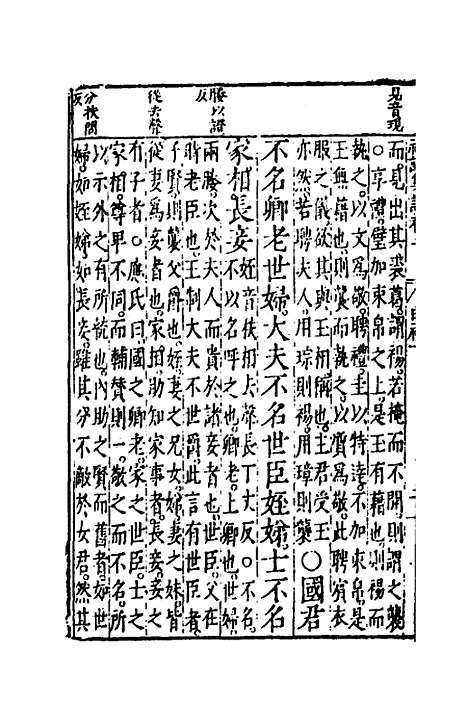 見音現
媵以證反
從去聲
分扶問反
而見出其裘葛謂裼若掩而不開則謂之襲
○享禮璧加束帛之上是玉有藉也則裼而
執之以文爲敬聘禮圭璋特達不加束帛是
玉無藉也則襲而執之以質爲敬此聘賓衣
服之儀欲其與玉相稱也主君受玉
亦然若聘夫人用琮則裼用璋則襲○國君
不名卿老世婦大夫不名世臣姪娣士不名
家相長妾姪音侄相去聲長丁丈反○不名
不以名呼之也卿老上卿也世婦
兩媵次於夫人而貴於諸妾者也世臣父在
時老臣也王制大夫不世爵此言有世臣者
子賢則襲父爵也姪妻之兄女娣妻之妹皆
從妻爲妾者也家相助知家事者長妾妾之
有子者○應氏曰國之卿老家之世臣士之
家相尊卑不同而輔贊則一敬之而不名所
以示外之有所統也內助之賢而舊者如世
婦如姪娣如長妾雖其分不敵於女君然其